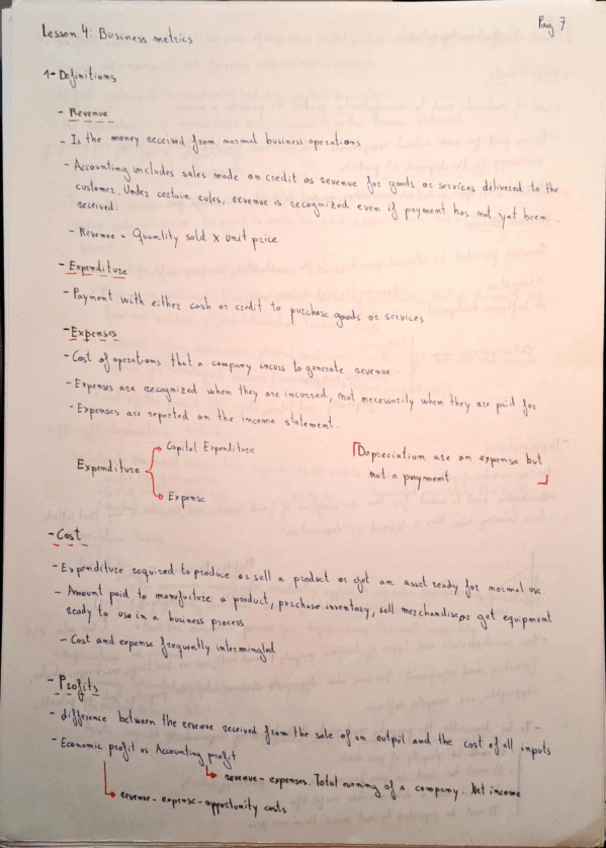 Pag 7
Lesson 4: Business metrics
1- Definitions
- Revenue
- Is the money received from normal business operations
- Accounting includes sales made on credit as revenue for goods or services delivered to the
customer. Under certain rules, revenue is recognized even if payment has not yet been
received.
- Revenue = Quantity sold x unit price
- Expenditure
- Payment with either cash or credit to purchase goods or services
- Expenses
- Cost of operations that a company incurs to generate revenue
- Expenses are recognized when they are incurred, not necessarily when they are paid for
- Expenses are reported on the income statement.
Expenditure
Capital Expenditure
Expense
Depreciation are an expense but
not a payment
- Cost
- Expenditure required to produce or sell a product or get an asset ready for normal use.
- Amount paid to manufacture a product, purchase inventory, sell merchandise or get equipment
ready to use in a business process
- Cost and expense frequently intermingled
- Profits
- difference between the revenue received from the sale of an output and the cost of all inputs
- Economic profit vs Accounting profit
revenue - expenses. Total earning of a company. Net income
revenue - expense - opportunity costs